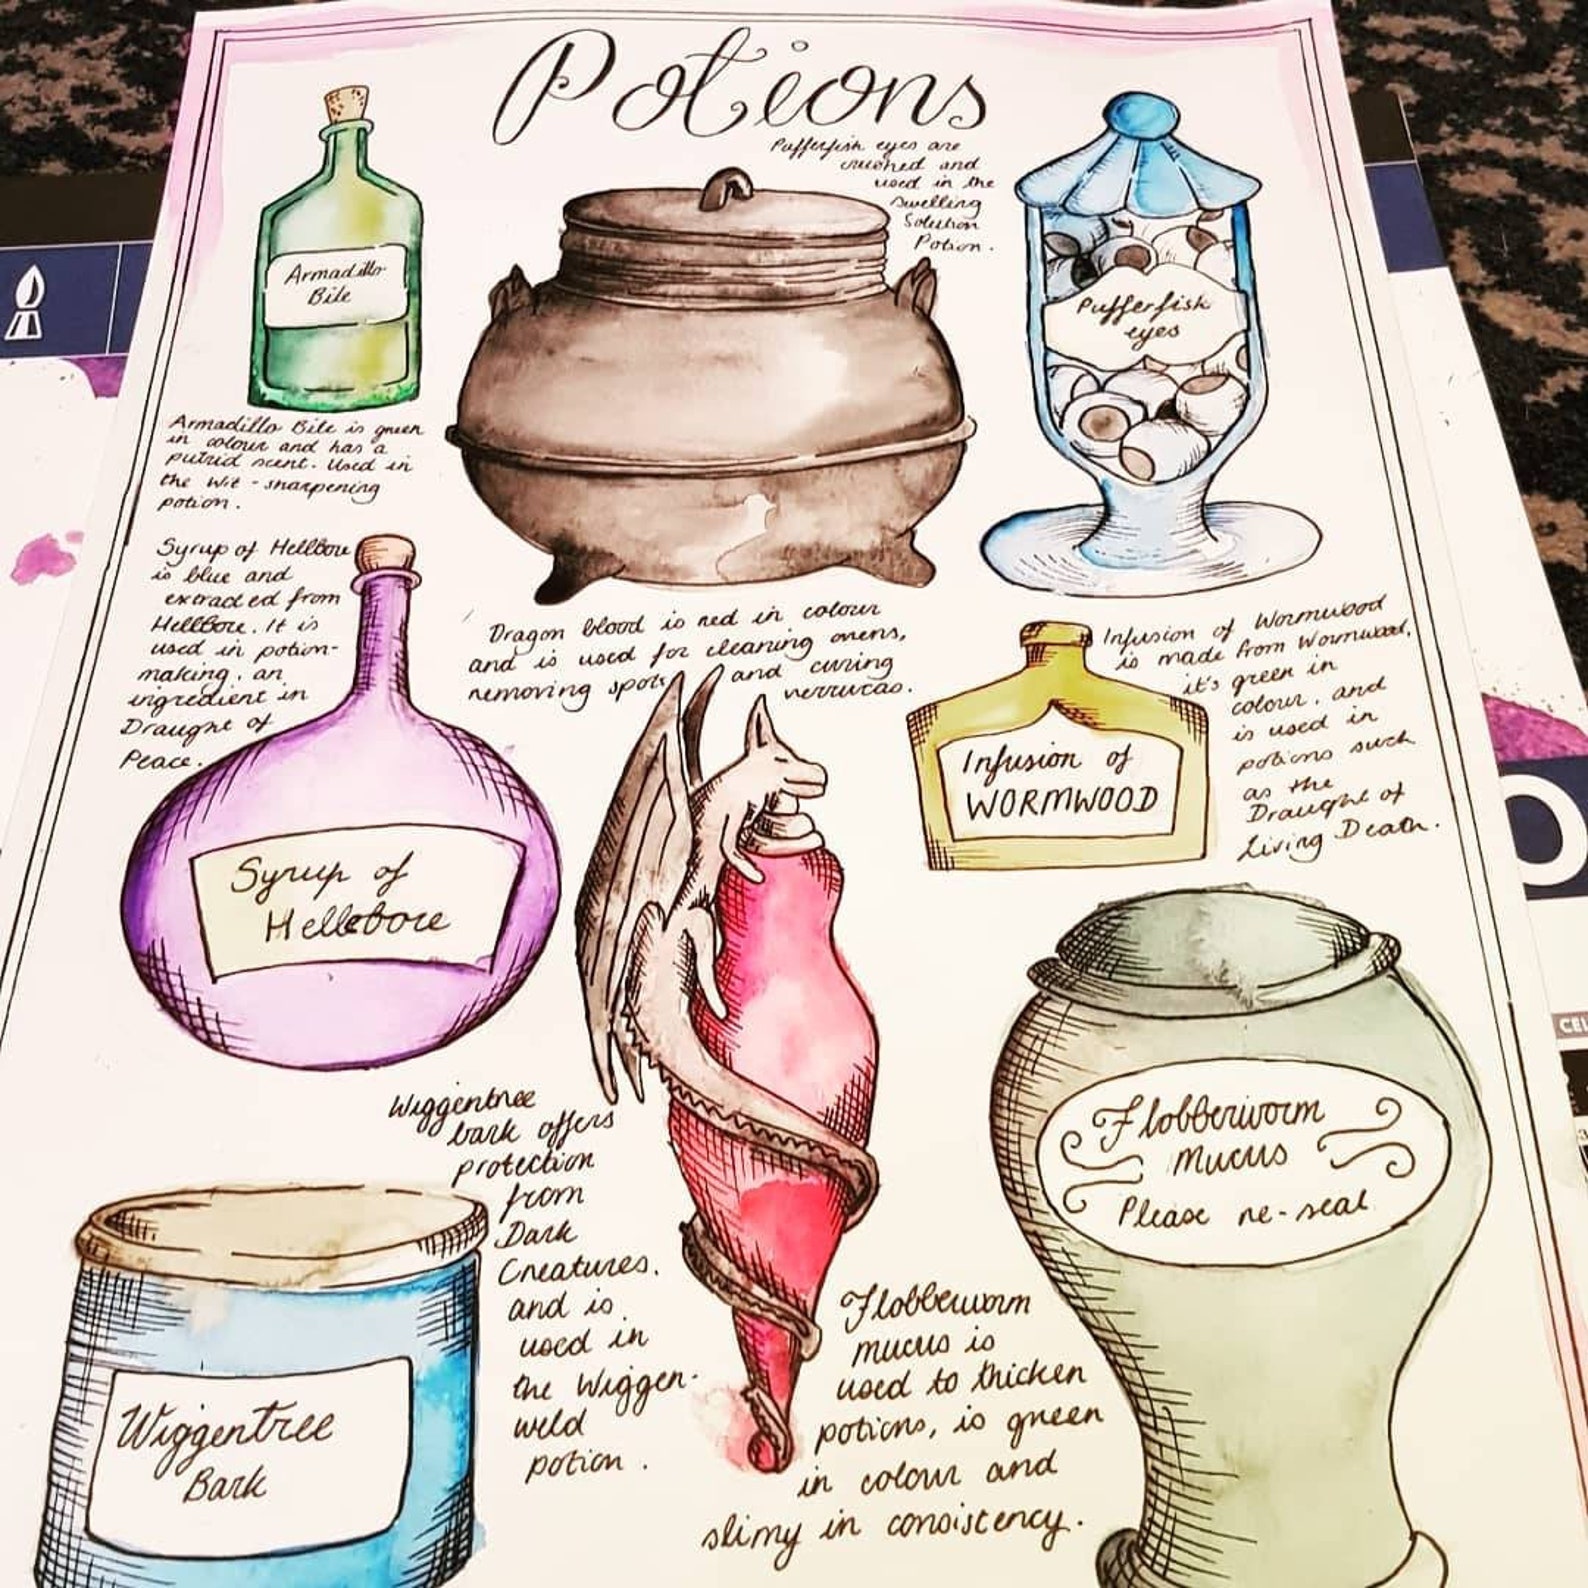 Potions
Pufferfish eyes are
crushed and
used in the
Swelling
Solution
Potion.
Armadillo
Bile
Pufferfish
eyes
Armadillo Bile is green
in colour and has a
putrid scent. Used in
the Wit-sharpening
potion.
Syrup of Hellbore
is blue and
extracted from
Hellbore. It is
used in potion-
making, an
ingredient in
Draught of
Peace.
Dragon blood is red in colour
and is used for cleaning ovens,
removing spots and curing
verrucas.
Infusion of Wormwood
is made from Wormwood,
it's green in
colour, and
is used in
potions such
as the
Draught of
Living Death.
Infusion of
WORMWOOD
Syrup of
Hellebore
Wiggentree
bark offers
protection
from
Dark
Creatures.
and is
used in
the Wiggen-
weld
potion.
Flobberworm
mucus
Please re-seal
Flobberworm
mucus is
used to thicken
potions, is green
in colour and
slimy in consistency.
Wiggentree
Bark